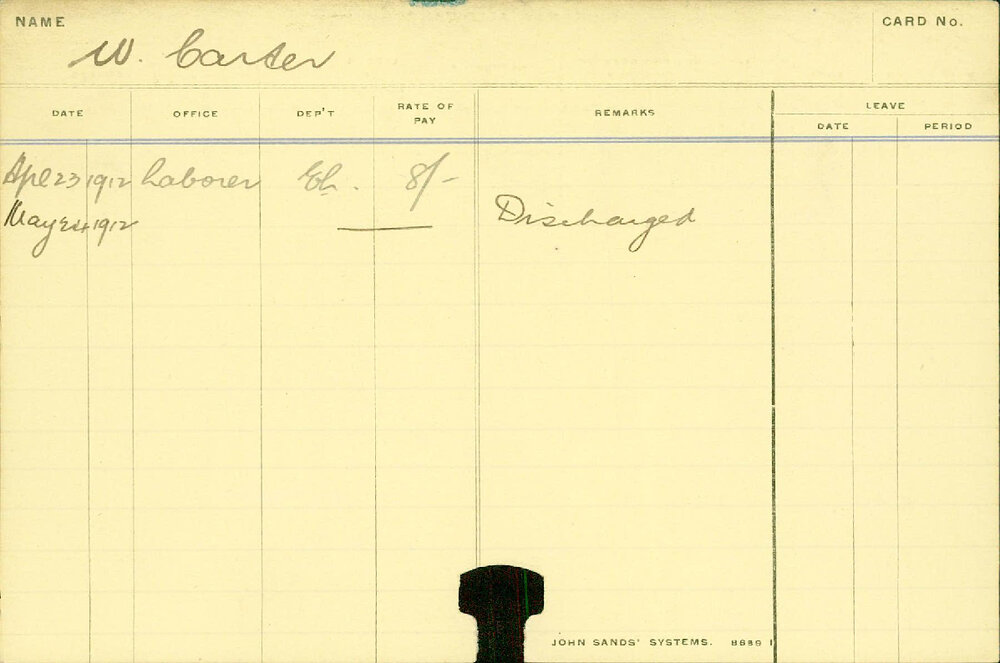 NAME
W. Carter
CARD No.
DATE OFFICE DEP'T RATE OF PAY REMARKS LEAVE
DATE PERIOD
Apl 23 1912 Laborer Eh. 8/-
May 24 1912 Discharged
JOHN SANDS' SYSTEMS. 8889